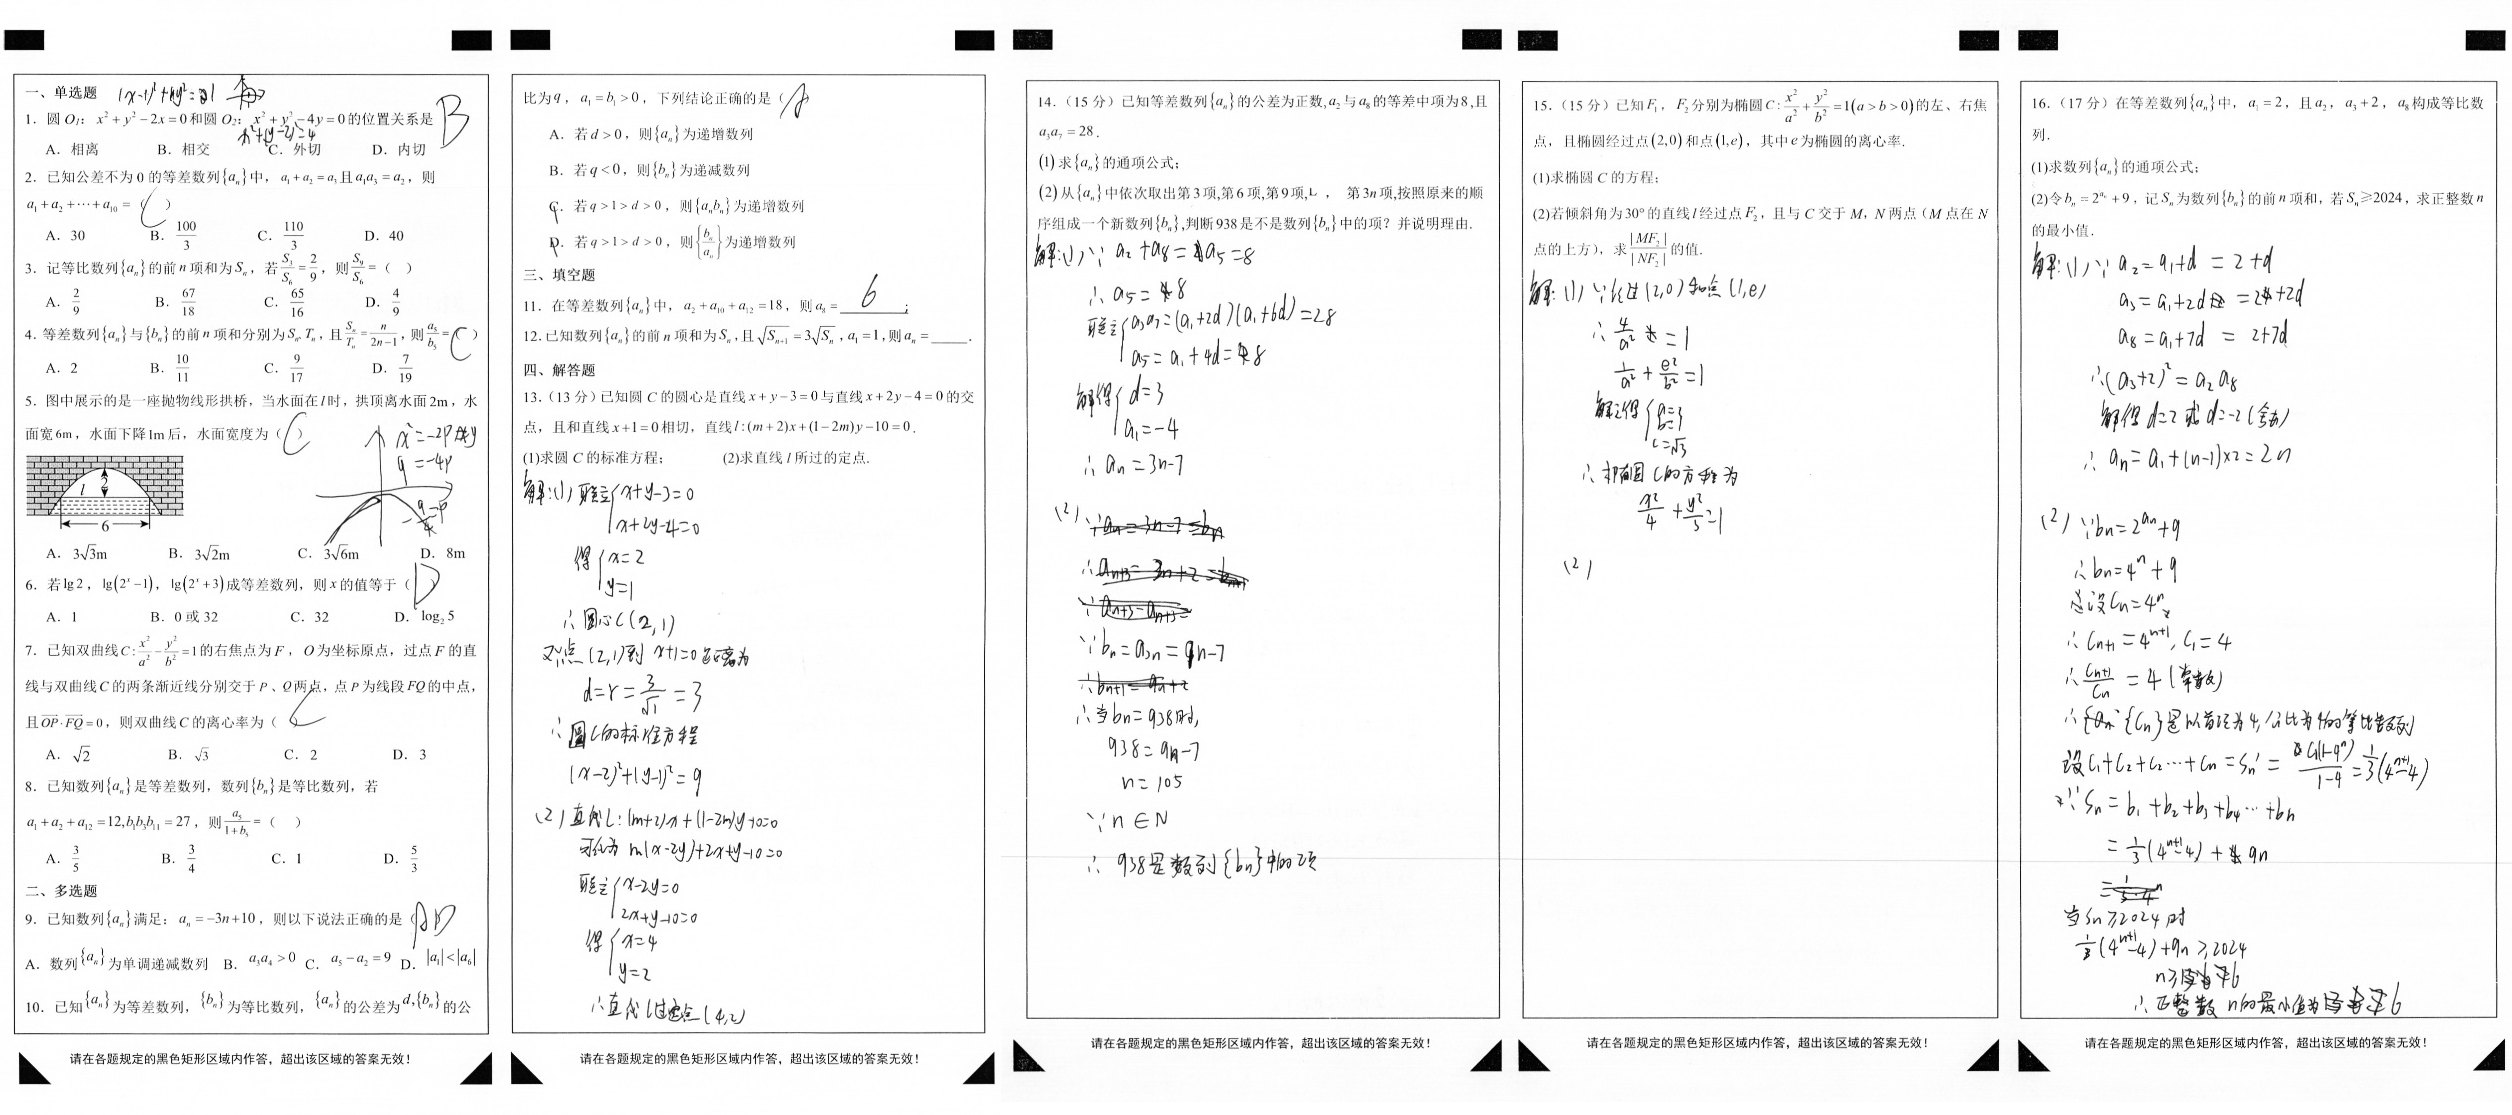 一、单选题 (x-1)²+y²=1
1. 圆 O₁: x²+y²-2x=0 和圆 O₂: x²+y²-4y=0 的位置关系是 B
x²+(y-2)²=4
A. 相离 B. 相交 C. 外切 D. 内切
2. 已知公差不为 0 的等差数列{aₙ}中, a₁+a₂=a₃且a₁a₃=a₂, 则
a₁+a₂+⋯+a₁₀=( C )
A. 30 B. 100/3 C. 110/3 D. 40
3. 记等比数列{aₙ}的前n项和为Sₙ, 若S₃/S₆=2/9, 则S₉/S₆=( )
A. 2/9 B. 67/18 C. 65/16 D. 4/9
4. 等差数列{aₙ}与{bₙ}的前n项和分别为Sₙ,Tₙ, 且Sₙ/Tₙ=n/(2n-1), 则a₅/b₅=( C )
A. 2 B. 10/11 C. 9/17 D. 7/19
5. 图中展示的是一座抛物线形拱桥, 当水面在l时, 拱顶离水面2m, 水
面宽6m, 水面下降1m后, 水面宽度为( C )
x²=-2py
9=-4p
-9/4=p
2
l
6
A. 3√3m B. 3√2m C. 3√6m D. 8m
6. 若lg2, lg(2ˣ-1), lg(2ˣ+3)成等差数列, 则x的值等于( D )
A. 1 B. 0或32 C. 32 D. log₂5
7. 已知双曲线C: x²/a²-y²/b²=1的右焦点为F, O为坐标原点, 过点F的直
线与双曲线C的两条渐近线分别交于P、Q两点, 点P为线段FQ的中点,
且OP·FQ=0, 则双曲线C的离心率为( C
A. √2 B. √3 C. 2 D. 3
8. 已知数列{aₙ}是等差数列, 数列{bₙ}是等比数列, 若
a₁+a₂+a₁₂=12,b₁b₃b₁₁=27, 则a₅/(1+b₅)=( )
A. 3/5 B. 3/4 C. 1 D. 5/3
二、多选题
9. 已知数列{aₙ}满足: aₙ=-3n+10, 则以下说法正确的是 (AD
A. 数列{aₙ}为单调递减数列 B. a₃a₄>0 C. a₅-a₂=9 D. |a₁|<|a₆|
10. 已知{aₙ}为等差数列, {bₙ}为等比数列, {aₙ}的公差为d,{bₙ}的公
请在各题规定的黑色矩形区域内作答, 超出该区域的答案无效!
比为q, a₁=b₁>0, 下列结论正确的是(
A. 若d>0, 则{aₙ}为递增数列
B. 若q<0, 则{bₙ}为递减数列
C. 若q>1>d>0, 则{aₙbₙ}为递增数列
D. 若q>1>d>0, 则{bₙ/aₙ}为递增数列
三、填空题
11. 在等差数列{aₙ}中, a₂+a₁₀+a₁₂=18, 则a₈= 6 ;
12.已知数列{aₙ}的前n项和为Sₙ,且√Sₙ₊₁=3√Sₙ, a₁=1,则aₙ=_____.
四、解答题
13.(13 分)已知圆C的圆心是直线x+y-3=0与直线x+2y-4=0的交
点, 且和直线x+1=0相切, 直线l:(m+2)x+(1-2m)y-10=0.
(1)求圆C的标准方程; (2)求直线l所过的定点.
解:(1) 联立{x+y-3=0
x+2y-4=0
得{x=2
y=1
∴圆心C(2,1)
又∵点(2,1)到 x+1=0 距离为
d=r=3/√1=3
∴圆C的标准方程
(x-2)²+(y-1)²=9
(2) 直线l:(m+2)x+(1-2m)y-10=0
可化为 m(x-2y)+2x+y-10=0
联立{x-2y=0
2x+y-10=0
得{x=4
y=2
∴直线l过定点(4,2)
请在各题规定的黑色矩形区域内作答, 超出该区域的答案无效!
14. (15 分) 已知等差数列{aₙ}的公差为正数,a₂与a₈的等差中项为8,且
a₃a₇=28.
(1)求{aₙ}的通项公式;
(2)从{aₙ}中依次取出第3项,第6项,第9项,L , 第3n项,按照原来的顺
序组成一个新数列{bₙ},判断938是不是数列{bₙ}中的项? 并说明理由.
解:(1)∵a₂+a₈=a₅=8
∴a₅=8
联立{a₃a₇=(a₁+2d)(a₁+6d)=28
a₅=a₁+4d=8
解得{d=3
a₁=-4
∴aₙ=3n-7
(2) ∵aₙ=3n-7=bₙ
∴aₙ₊₃=3n+2=bₙ₊₁
∵aₙ₊₃-aₙ₊₃=
∵bₙ=a₃ₙ=9n-7
∴bₙ₊₁=9n+2
∴当bₙ=938时,
938=9n-7
n=105
∵n∈N
∴938是数列{bₙ}中的项
请在各题规定的黑色矩形区域内作答, 超出该区域的答案无效!
15. (15 分) 已知F₁, F₂分别为椭圆C: x²/a²+y²/b²=1(a>b>0)的左、右焦
点, 且椭圆经过点(2,0)和点(1,e), 其中e为椭圆的离心率.
(1)求椭圆C的方程;
(2)若倾斜角为30°的直线l经过点F₂, 且与C交于M, N两点 (M点在N
点的上方), 求|MF₂|/|NF₂|的值.
解:(1)∵C过(2,0)和点(1,e)
∴4/a²=1
1/a²+e²/b²=1
解之得{a=
b=1
c=√3
∴椭圆C的方程为
x²/4+y²/3=1
(2)
请在各题规定的黑色矩形区域内作答, 超出该区域的答案无效!
16. (17 分) 在等差数列{aₙ}中, a₁=2, 且a₂, a₃+2, a₈构成等比数
列.
(1)求数列{aₙ}的通项公式;
(2)令bₙ=2^(aₙ)+9, 记Sₙ为数列{bₙ}的前n项和, 若Sₙ≥2024, 求正整数n
的最小值.
解:(1)∵a₂=a₁+d=2+d
a₃=a₁+2d=2+2d
a₈=a₁+7d=2+7d
∴(a₃+2)²=a₂a₈
解得d=2或d=-2(舍去)
∴aₙ=a₁+(n-1)×2=2n
(2)∵bₙ=2^(aₙ)+9
∴bₙ=4ⁿ+9
设Cₙ=4ⁿ
∴Cₙ₊₁=4ⁿ⁺¹, C₁=4
∴Cₙ₊₁/Cₙ=4(常数)
∴{Cₙ}是以首项为4,公比为4的等比数列
设C₁+C₂+C₂⋯+Cₙ=Sₙ'=C₁(1-4ⁿ)/(1-4)=1/3(4ⁿ⁺¹-4)
又∵Sₙ=b₁+b₂+b₃+b₄⋯+bₙ
=1/3(4ⁿ⁺¹-4)+9n
当Sₙ≥2024时
1/3(4ⁿ⁺¹-4)+9n≥2024
n≥6
∴正整数n的最小值为6
请在各题规定的黑色矩形区域内作答, 超出该区域的答案无效!